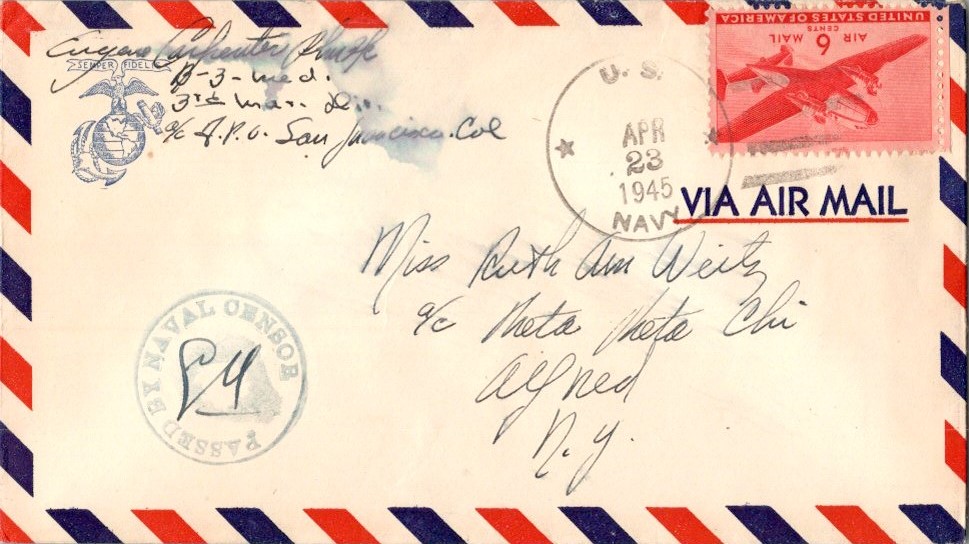 Eugene Carpenter
SEMPER FIDELIS
B-3-Med.
3rd Mar. Div.
c/o F.P.O. San Francisco. Cal
U. S.
APR
23
1945
NAVY
UNITED STATES OF AMERICA
CENTS
6
AIR MAIL
VIA AIR MAIL
Miss Ruth Ann Weitz
c/o Theta Theta Chi
Alfred
N.Y.
PASSED BY NAVAL CENSOR